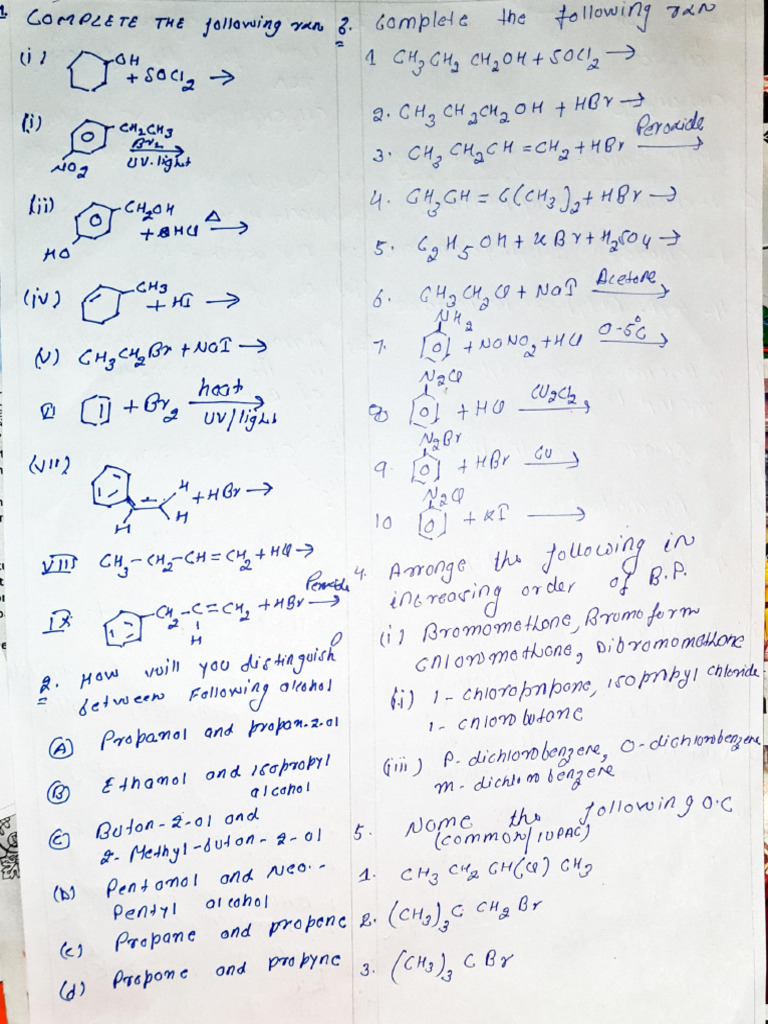 1 COMPLETE THE following rxn
(i) OH + SOCl2 →
(i) CH2CH3 Br2 UV.light NO2
(ii) CH2OH + HCl Δ → HO
(iv) CH3 + HI →
(v) CH3CH2Br + NaI →
+ Br2 heat UV/light
(vii) H + HBr → H H
VIII CH3-CH2-CH=CH2 + HCl →
IX CH2-C=CH2 + HBr Peroxide → H
2. How will you distinguish
between Following alcohol
(A) Propanol and propan-2-ol
(B) Ethanol and isopropyl
alcohol
(C) Butan-2-ol and
2-Methyl-butan-2-ol
(D) Pentanol and Neo-
Pentyl alcohol
(c) Propane and propene
(d) Propane and propyne
3. Complete the following rxn
1 CH3CH2CH2OH + SOCl2 →
2. CH3CH2CH2OH + HBr →
3. CH3CH2CH=CH2 + HBr Peroxide →
4. CH3CH=C(CH3)2 + HBr →
5. C2H5OH + KBr + H2SO4 →
6. CH3CH2Cl + NaI Acetone →
7. NH2 + NaNO2 + HCl 0-5°C →
8 N2Cl + HCl Cu2Cl2 →
9. N2Br + HBr Cu →
10 N2Cl + KI →
4. Arrange the following in
increasing order of B.P.
(i) Bromomethane, Bromoform
Chloromethane, Dibromomethane
(ii) 1-chloropropane, isopropyl chloride
1-chlorobutane
(iii) P-dichlorobenzene, O-dichlorobenzene
m-dichlorobenzene
5. Name the following O.C
(common/IUPAC)
1. CH3CH2CH(Cl)CH3
2. (CH3)3C CH2Br
3. (CH3)3 C Br